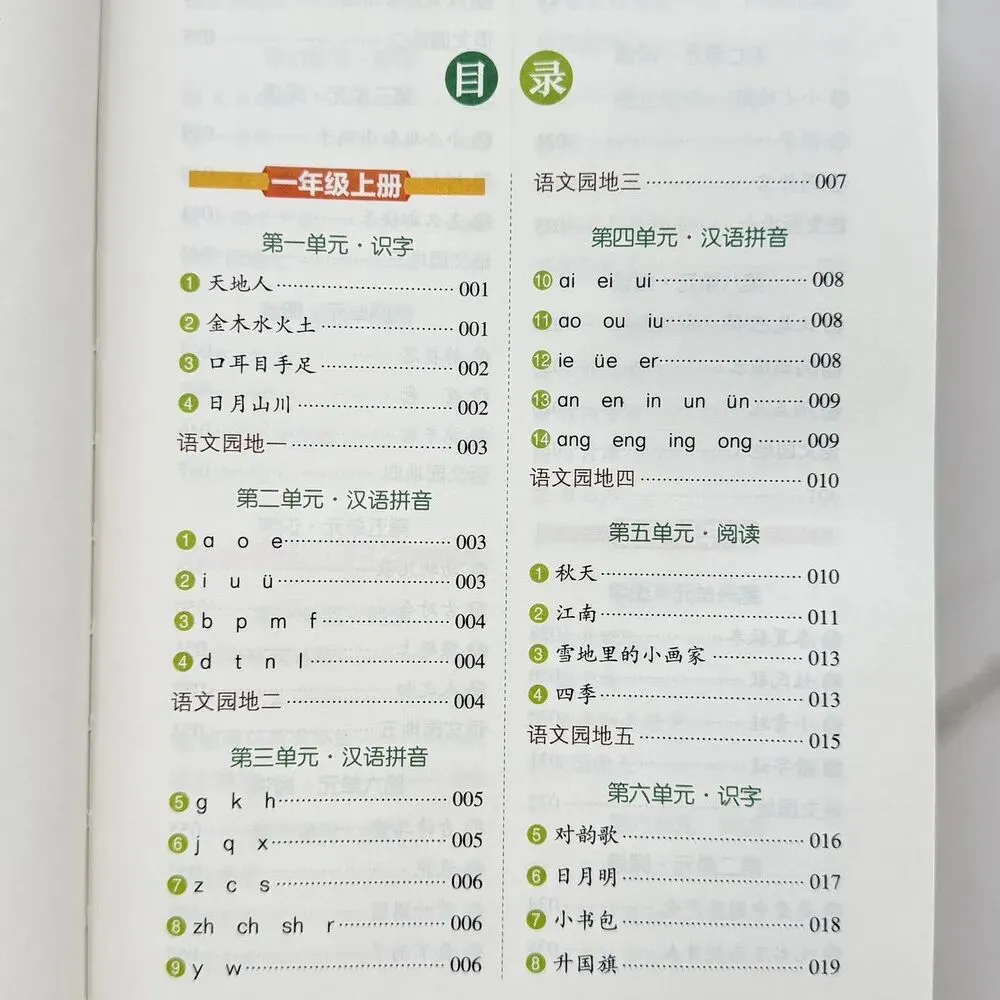 目录
一年级上册
第一单元·识字
1 天地人 001
2 金木水火土 001
3 口耳目手足 002
4 日月山川 002
语文园地一 003
第二单元·汉语拼音
1 a o e 003
2 i u ü 003
3 b p m f 004
4 d t n l 004
语文园地二 004
第三单元·汉语拼音
5 g k h 005
6 j q x 005
7 z c s 006
8 zh ch sh r 006
9 y w 006
语文园地三 007
第四单元·汉语拼音
10 ai ei ui 008
11 ao ou iu 008
12 ie üe er 008
13 an en in un ün 009
14 ang eng ing ong 009
语文园地四 010
第五单元·阅读
1 秋天 010
2 江南 011
3 雪地里的小画家 013
4 四季 013
语文园地五 015
第六单元·识字
5 对韵歌 016
6 日月明 017
7 小书包 018
8 升国旗 019